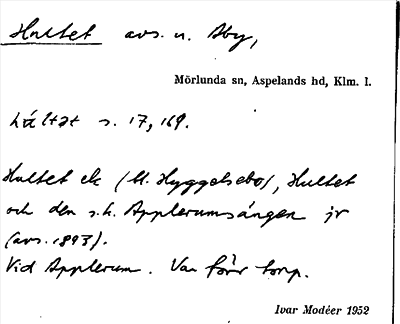 Hultet avs. u. Åby,
Mörlunda sn, Aspelands hd, Klm. l.
s. 17, 169.
Hultet ek (U. Hyggelsebo), Hultet
och den s.k. Applerumsängen jr
(avs. 1893).
Vid Applerum. Var förr torp.
Ivar Modéer 1952